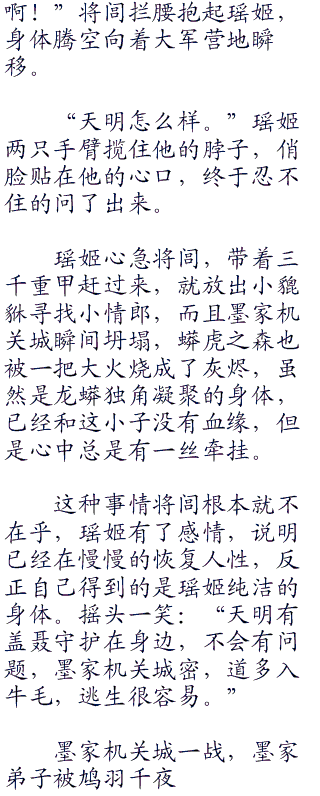 啊！”将闾拦腰抱起瑶姬，
身体腾空向着大军营地瞬
移。
“天明怎么样。”瑶姬
两只手臂揽住他的脖子，俏
脸贴在他的心口，终于忍不
住的问了出来。
瑶姬心急将闾，带着三
千重甲赶过来，就放出小貔
貅寻找小情郎，而且墨家机
关城瞬间坍塌，蟒虎之森也
被一把大火烧成了灰烬，虽
然是龙蟒独角凝聚的身体，
已经和这小子没有血缘，但
是心中总是有一丝牵挂。
这种事情将闾根本就不
在乎，瑶姬有了感情，说明
已经在慢慢的恢复人性，反
正自己得到的是瑶姬纯洁的
身体。摇头一笑：“天明有
盖聂守护在身边，不会有问
题，墨家机关城密，道多入
牛毛，逃生很容易。”
墨家机关城一战，墨家
弟子被鸠羽千夜